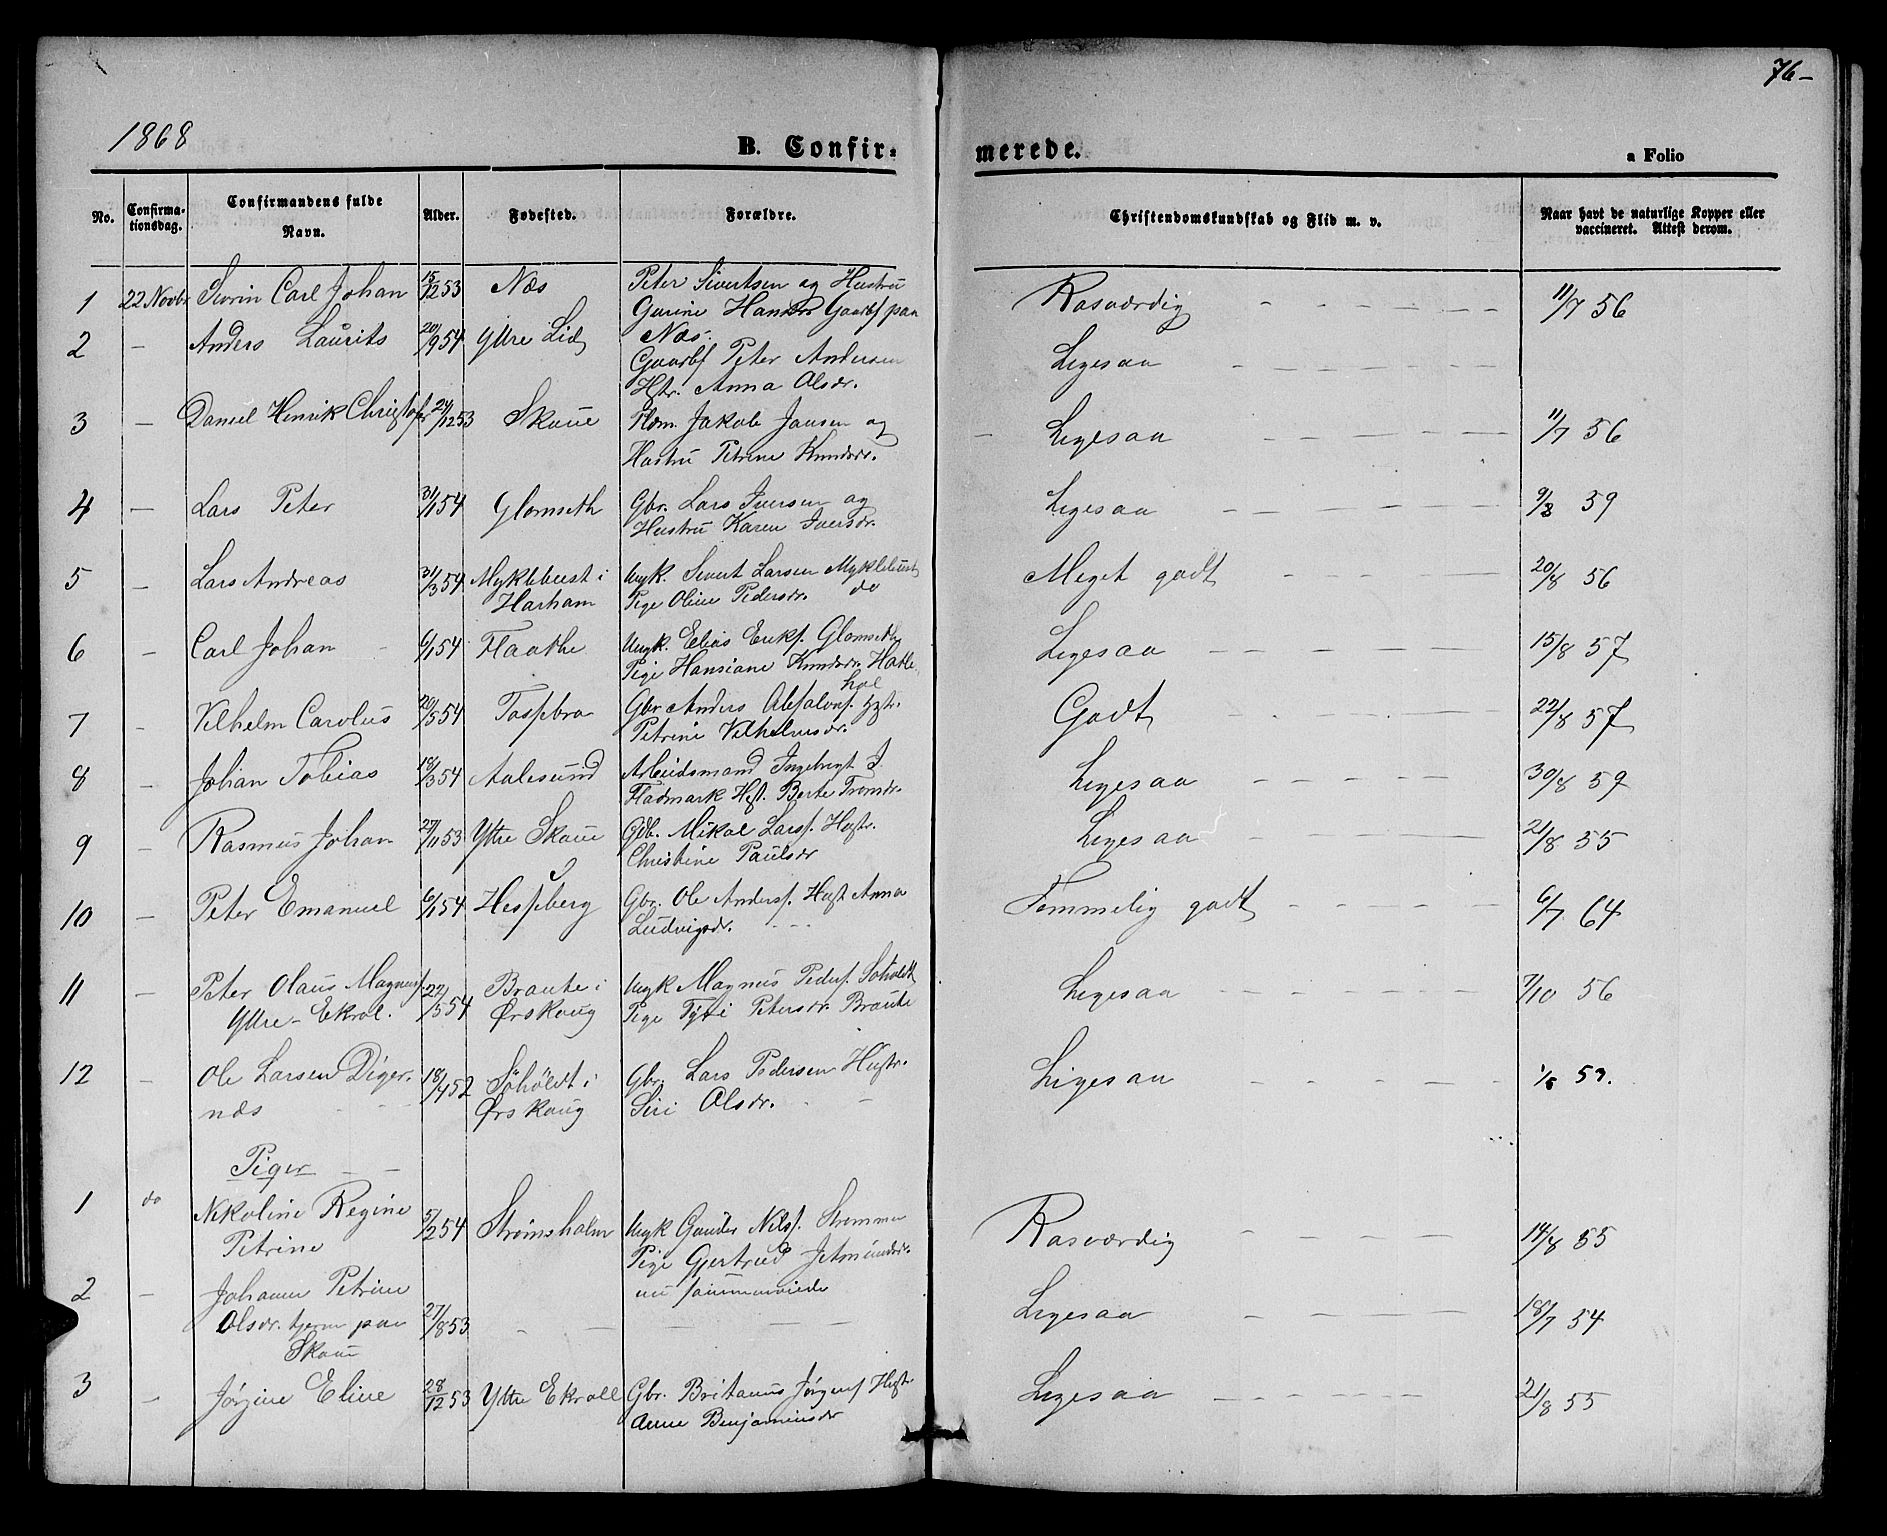 76-
1868
B. Confirmerede.
a Folio
No.
Confirmationsdag.
Confirmandens fulde Navn.
Alder.
Fødested.
Forældre.
Christendomskundskab og Flid m. v.
Naar havt de naturlige Kopper eller vaccineret. Attest derom.
1 22 Novbr Sivrin Carl Johan 15/12 53 Næs Peter Sivertsen og Hustru Rosværdig 11/7 56
Gurine Hansdr Gaardbf paa
Næs.
2 - Anders Laurits 20/9 54 Yttre Lid Gaardbf Peter Andersen Ligesaa
Hstr. Anna Olsdr.
3 - Daniel Henrik Christofer 24/12 53 Skoue Hsm. Jakob Jansen og Ligesaa 11/7 56
Hustru Petrine Knudsdr.
4 - Lars Peter 31/1 54 Glomseth Gbr. Lars Iversen og Ligesaa 9/8 59
Hustru Karen Iversdr.
5 - Lars Andreas 31/3 54 Myklebust i Ungk. Sivert Larsen Myklebust Meget godt 20/8 56
Harham Pige Oline Pedersdr. do
6 - Carl Johan 6/1 54 Flaathe Ungk. Elias Eriks. Glomseth Ligesaa 15/8 57
Pige Hansiane Knudsdr. Hatle-
hol
7 - Vilhelm Carolus 20/5 54 Tossebro Gbr Anders Absalons. Hstr. Godt 22/8 57
Petrine Vilhelmsdr.
8 - Johan Tobias 18/3 54 Aalesund Arbeidsmand Ingebrigt J. Ligesaa 30/8 59
Fladmark Hust. Berte Tromdr.
9 - Rasmus Johan 27/11 53 Yttre Skoue Gdb. Mikal Larss. Hustr. Ligesaa 21/8 55
Christine Paulsdr
10 - Peter Emanuel 6/1 54 Hesseberg Gbr. Ole Anderss. Hust Anna Temmelig godt 6/7 64
Ludvigsdr.
11 - Peter Olaus Magnuss. 22/5 54 Braute i Ungk Magnus Peders. Søholdt Ligesaa 7/10 56
Yttre-Ekrol. Ørskoug Pige Tyri Petersdr. Braute
12 - Ole Larsen Diger- 18/4 52 Söhöldt i Gbr. Lars Pedersen Hustr. Ligesaa 1/6 53.
næs Ørskoug Siri Olsdr.
Piger
1 do Nikoline Regine 5/2 54 Strømsholm Ungk Gunder Nilss. Strømmen Rosværdig 14/8 55
Petrine Pige Gjertrud Jetmundsdr.
nu sammenviede
2 - Johanne Petrine 27/8 53 Ligesaa 18/7 54
Olsdr. tjener paa
Skoue
3 - Jørgine Eline 28/12 53 Yttre Ekroll Gbr. Britanus Jørgens. Hustr Ligesaa 21/8 55
Anne Benjaminsdr